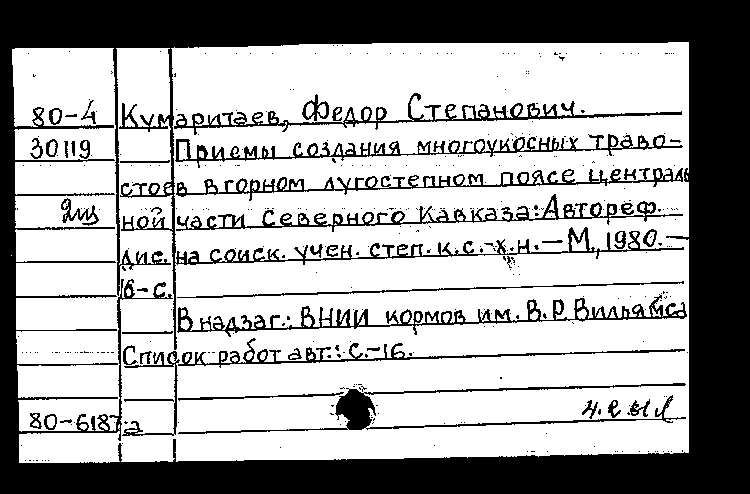 80-4 Кумаритаев, Федор Степанович.
30119 Приемы создания многоукосных траво-
стоев в горном лугостепном поясе централь
ной части Северного Кавказа: Автореф.
дис. на соиск. учен. степ. к.с.-х.н. — М., 1980. —
16 с.
В надзаг.: ВНИИ кормов им. В.Р. Вильямса
Список работ авт.: С.-16.
80-6187а